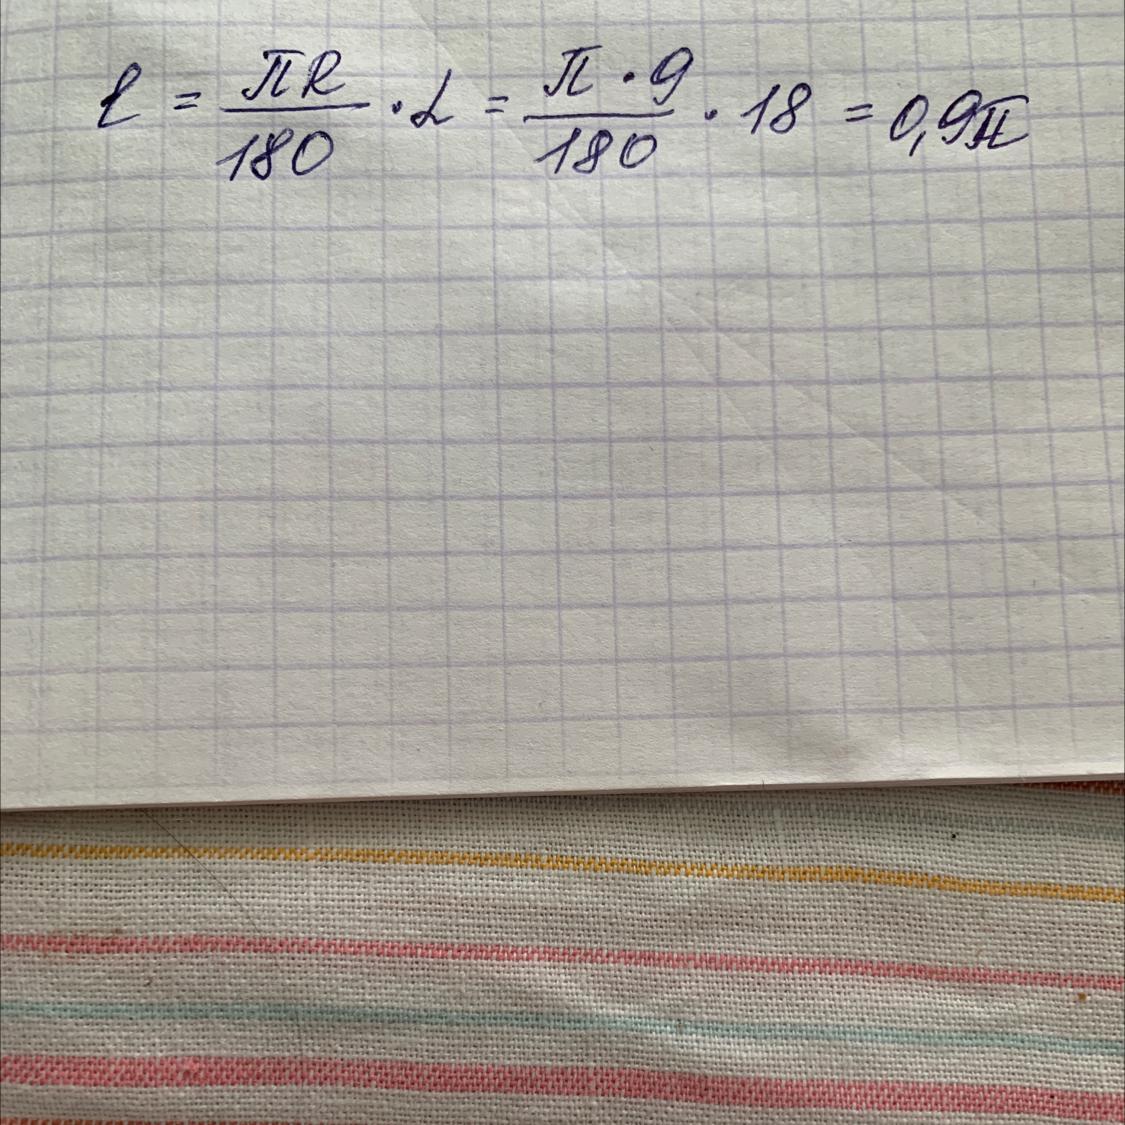 ℓ = πR/180 · α = π · 9/180 · 18 = 0,9π